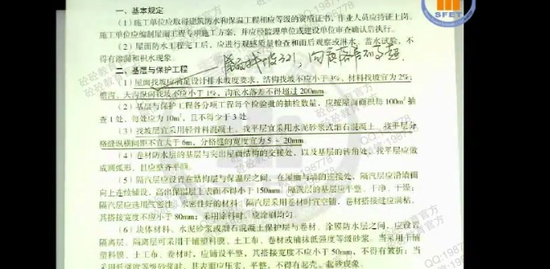 一、基本规定
（1）施工单位应取得建筑防水和保温工程相应等级的资质证书，作业人员应持证上岗。
施工单位应编制屋面工程专项施工方案，并应经监理单位或建设单位审查确认后执行。
（2）屋面防水工程完工后，应进行观感质量检查和雨后观察或淋水、蓄水试验，不
得有渗漏和积水现象。
二、基层与保护工程
（1）屋面找坡应满足设计排水坡度要求，结构找坡不应小于3%，材料找坡宜为2%；
檐沟、天沟纵向找坡不应小于1%，沟底水落差不得超过200mm。
（2）基层与保护工程各分项工程每个检验批的抽检数量，应按屋面面积每100m²抽
查1处，每处应为10m²，且不得少于3处。
（3）找坡层宜采用轻骨料混凝土，找平层宜采用水泥砂浆或细石混凝土，找平层分
格缝纵横间距不宜大于6m，分格缝的宽度宜为5～20mm。
（4）卷材防水层的基层与突出屋面结构的交接处，以及基层的转角处，找平层应做
成圆弧形，且应整齐平顺。
（5）隔汽层应设置在结构层与保温层之间，在屋面与墙的连接处，隔汽层应沿墙面
向上连续铺设，高出保温层上表面不得小于150mm。隔汽层的基层应平整、干净、干燥；
隔汽层应选用气密性、水密性好的材料；隔汽层采用卷材时宜空铺，卷材搭接缝应满粘，
其搭接宽度不应小于80mm；采用涂料时，应涂刷均匀。
（6）块体材料、水泥砂浆或细石混凝土保护层与卷材、涂膜防水层之间，应设置
隔离层，隔离层可采用干铺塑料膜、土工布、卷材或铺抹低强度等级砂浆。当采用干铺
塑料膜、土工布、卷材时，应铺设平整，其搭接宽度不应小于50mm，不得有皱折；当
采用低强度等级砂浆时，其表面应压实、平整，不得有起壳、起砂现象。
SFET